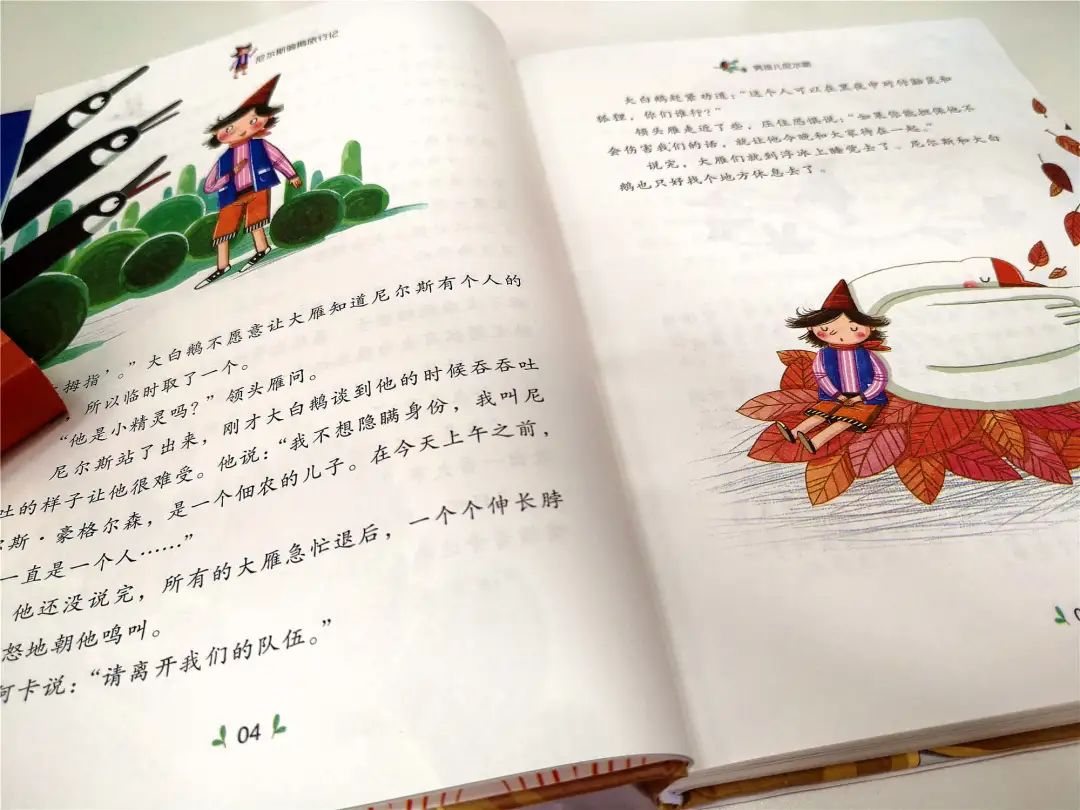 尼尔斯骑鹅旅行记
拇指’。”大白鹅不愿意让大雁知道尼尔斯有个人的
，所以临时取了一个。
“他是小精灵吗？”领头雁问。
尼尔斯站了出来，刚才大白鹅谈到他的时候吞吞吐
吐的样子让他很难受。他说：“我不想隐瞒身份，我叫尼
尔斯·豪格尔森，是一个佃农的儿子。在今天上午之前，
一直是一个人……”
他还没说完，所有的大雁急忙退后，一个个伸长脖
怒地朝他鸣叫。
阿卡说：“请离开我们的队伍。”
04
男孩儿尼尔斯
大白鹅赶紧劝道：“这个人可以在黑夜中对付鼬鼠和
狐狸，你们谁行？”
领头雁走近了些，压住恐惧说：“如果你能担保他不
会伤害我们的话，就让他今晚和大家待在一起。”
说完，大雁们就到浮冰上睡觉去了。尼尔斯和大白
鹅也只好找个地方休息去了。
0